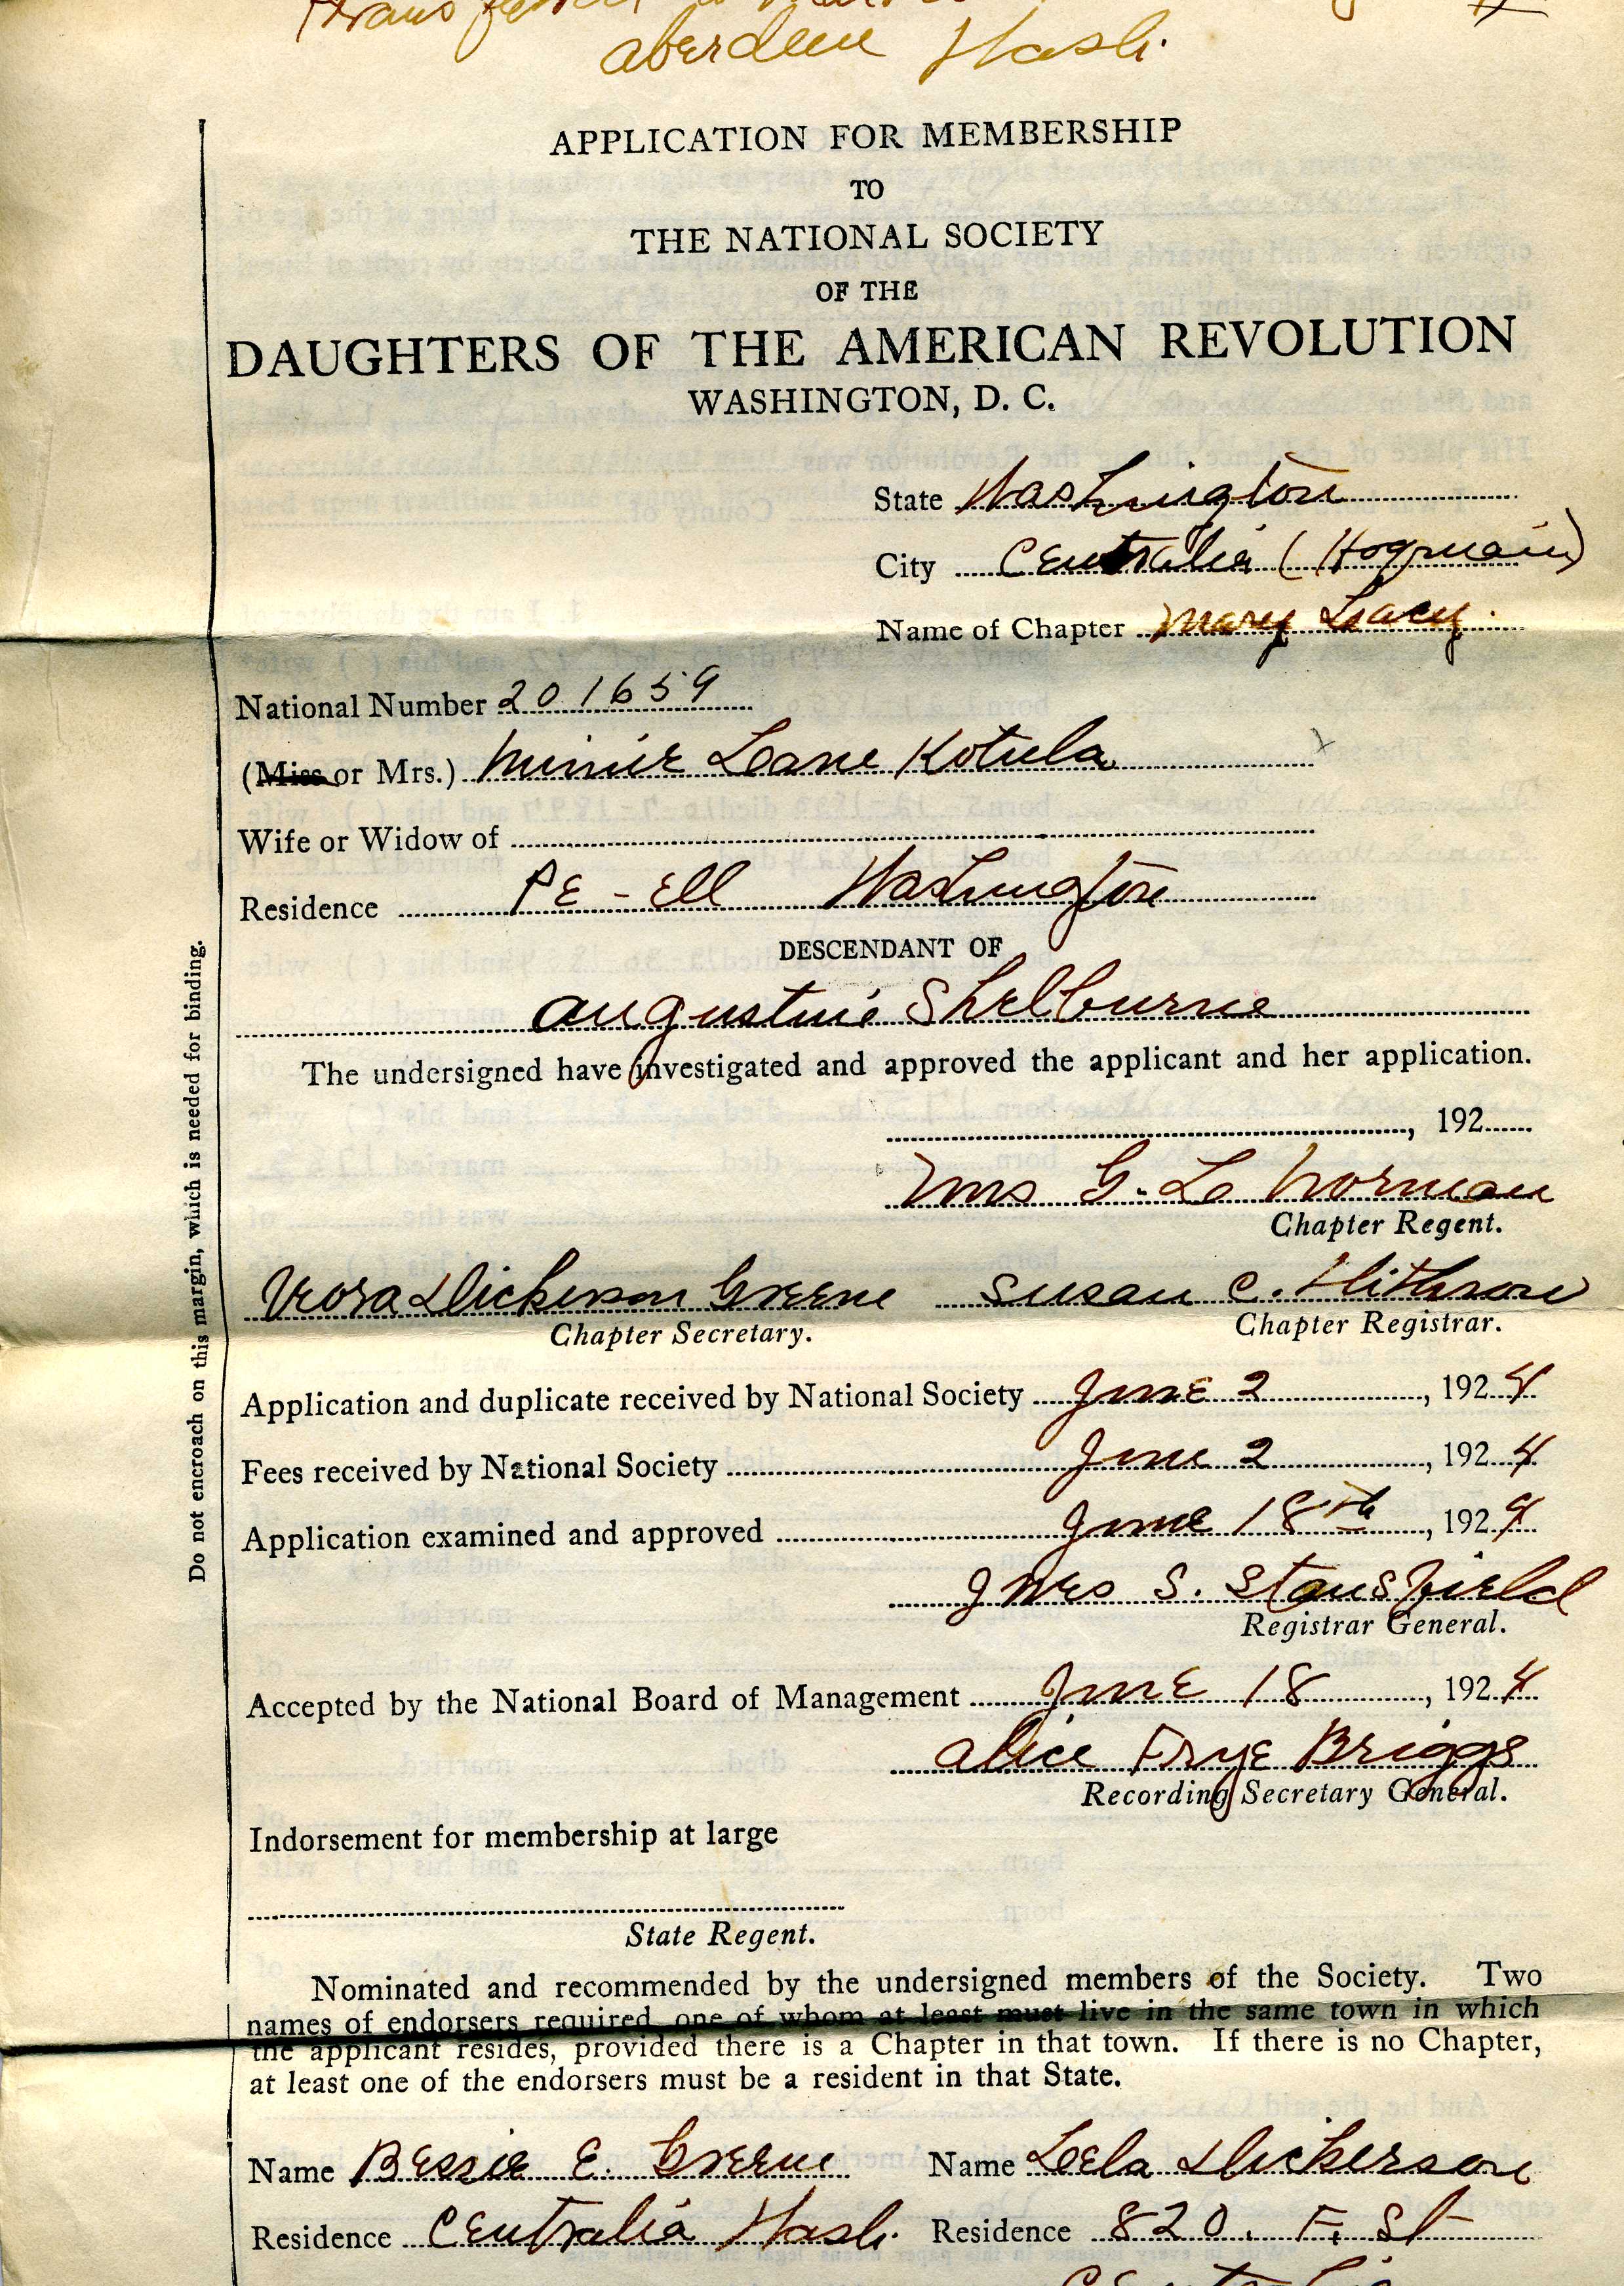 aberdeen Wash.
APPLICATION FOR MEMBERSHIP
TO
THE NATIONAL SOCIETY
OF THE
DAUGHTERS OF THE AMERICAN REVOLUTION
WASHINGTON, D. C.
State Washington
City Centralia (Hoqruain)
Name of Chapter Mary Lacy.
National Number 201659
(Miss or Mrs.) Minnie Leane Kotula
Wife or Widow of
Residence PE-Ell Washington
DESCENDANT OF
augustine Shelburne
The undersigned have investigated and approved the applicant and her application.
, 192
Mrs G. L. Norman
Chapter Regent.
Dickerson Greene Susan C.
Chapter Secretary. Chapter Registrar.
Application and duplicate received by National Society June 2, 1924
Fees received by National Society June 2, 1924
Application examined and approved June 18th, 1924
S. Stansfield
Registrar General.
Accepted by the National Board of Management June 18, 1924
alice Frye Briggs
Recording Secretary General.
Indorsement for membership at large
State Regent.
Nominated and recommended by the undersigned members of the Society. Two
names of endorsers required, one of whom at least must live in the same town in which
the applicant resides, provided there is a Chapter in that town. If there is no Chapter,
at least one of the endorsers must be a resident in that State.
Name Bessie E. Greene Name Leela Dickerson
Residence Centralia Wash. Residence 820. F. St
Do not encroach on this margin, which is needed for binding.